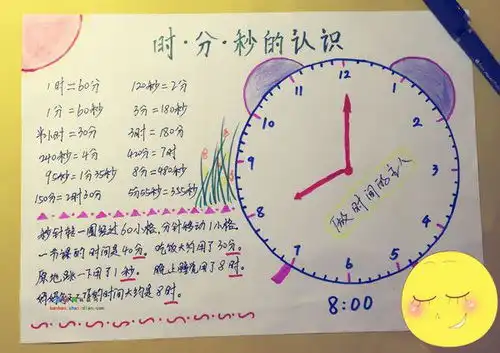 时·分·秒的认识
1时=60分 120秒=2分
1分=60秒 3分=180秒
半小时=30分 3时=180分
240秒=4分 420分=7时
95秒=1分35秒 8分=480秒
150分=2时30分 5分55秒=355秒
秒针转一圈经过60小格,分针转动1小格。
一节课的时间是40分。吃饭大约用了30分。
原地跳一下用了1秒。晚上睡觉用了8时。
的时间大约是8时。
12
1
2
3
4
5
6
7
8
9
10
11
做时间的主人
8:00